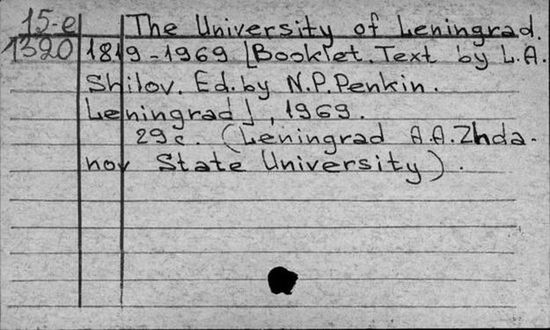 15-е The University of Leningrad.
1320 1819-1969 [Booklet. Text by L.A.
Shilov. Ed. by N.P. Penkin.
Leningrad], 1969.
29 с. (Leningrad A.A. Zhda-
nov State University).